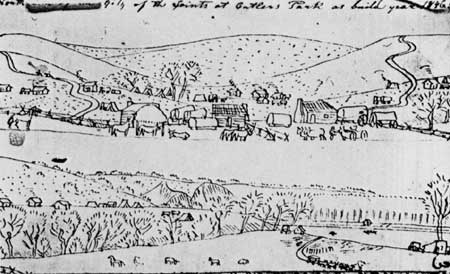 of the Saints at Cutlers Park as built year 1846